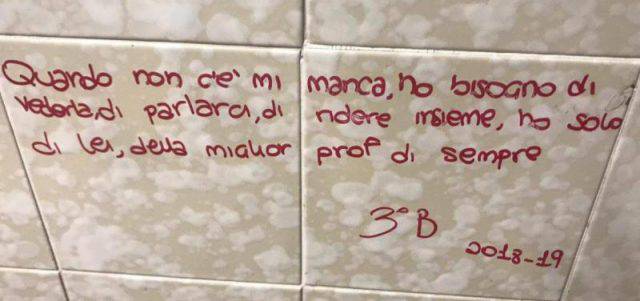 Quando non c'e' mi manca, ho bisogno di
vederla, di parlarci, di ridere insieme, ho solo
di lei, della miglior prof di sempre
3°B
2018-19